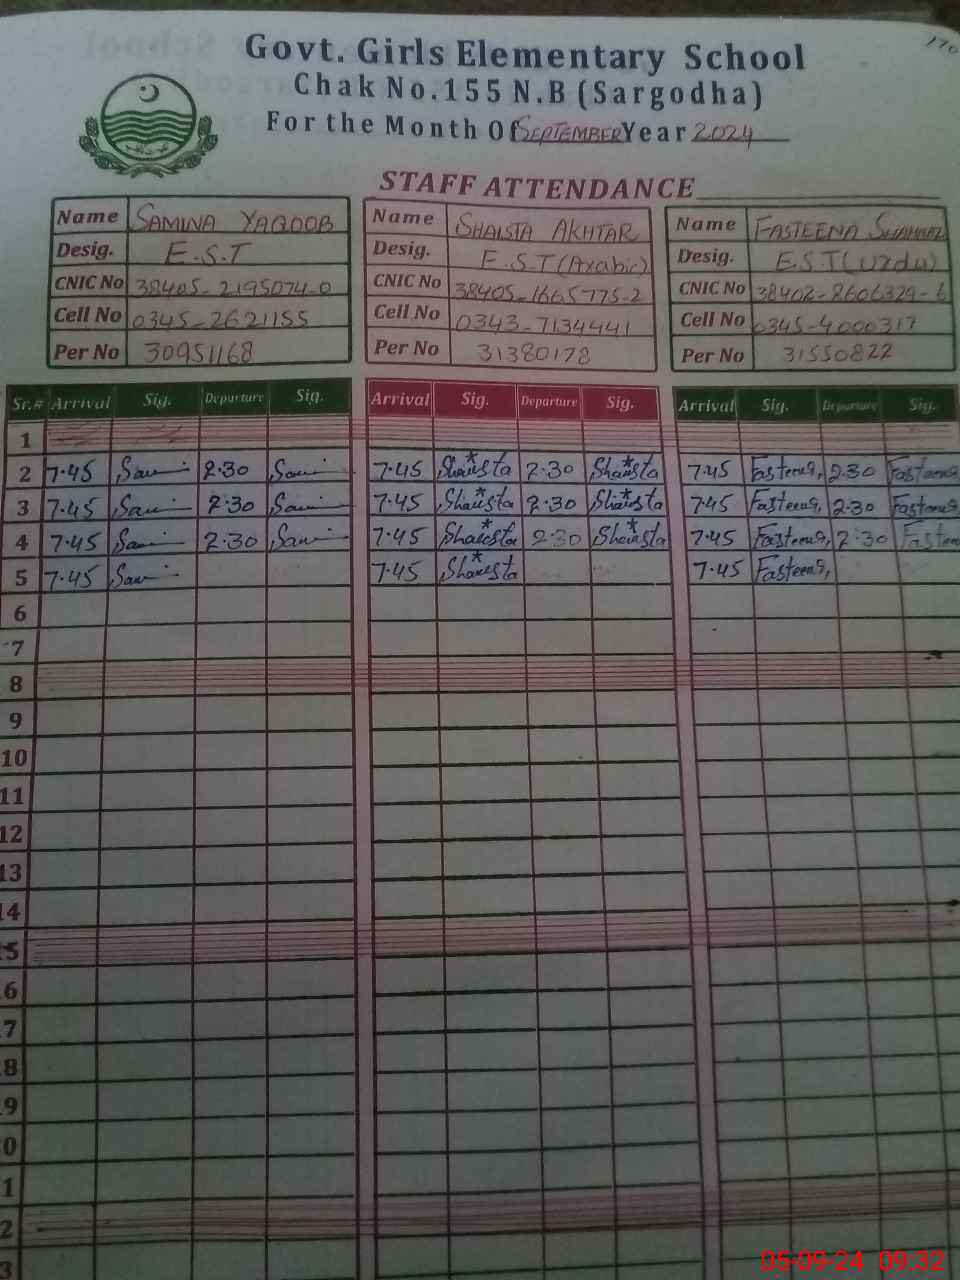 170
Govt. Girls Elementary School
Chak No.155 N.B (Sargodha)
For the Month Of SEPTEMBER Year 2024
STAFF ATTENDANCE
Name SAMINA YAQOOB Name SHAISTA AKHTAR Name FASTEENA SHAHNAZ
Desig. E.S.T Desig. E.S.T (Arabic) Desig. E.S.T (urdu)
CNIC No 38405-2195074-0 CNIC No 38405-1665775-2 CNIC No 38402-8606329-6
Cell No 0345-2621155 Cell No 0343-7134441 Cell No 0345-4000317
Per No 30951168 Per No 31380178 Per No 31550822
Sr.# Arrival Sig. Departure Sig. Arrival Sig. Departure Sig. Arrival Sig. Departure Sig.
1
2 7.45 Sam 2.30 Sam 7.45 Shaista 2.30 Shaista 7.45 Fasteena, 2.30 Fasteena
3 7.45 Sam 2.30 Sam 7.45 Shaista 2.30 Shaista 7.45 Fasteena, 2.30 Fasteena
4 7.45 Sam 2.30 Sam 7.45 Shaista 2.30 Shaista 7.45 Fasteena, 2.30 Fasteen
5 7.45 Sam 7.45 Shaista 7.45 Fasteena,
6
7
8
9
10
11
12
13
14
5
6
7
8
9
0
1
2
3
05-09-24 09:32